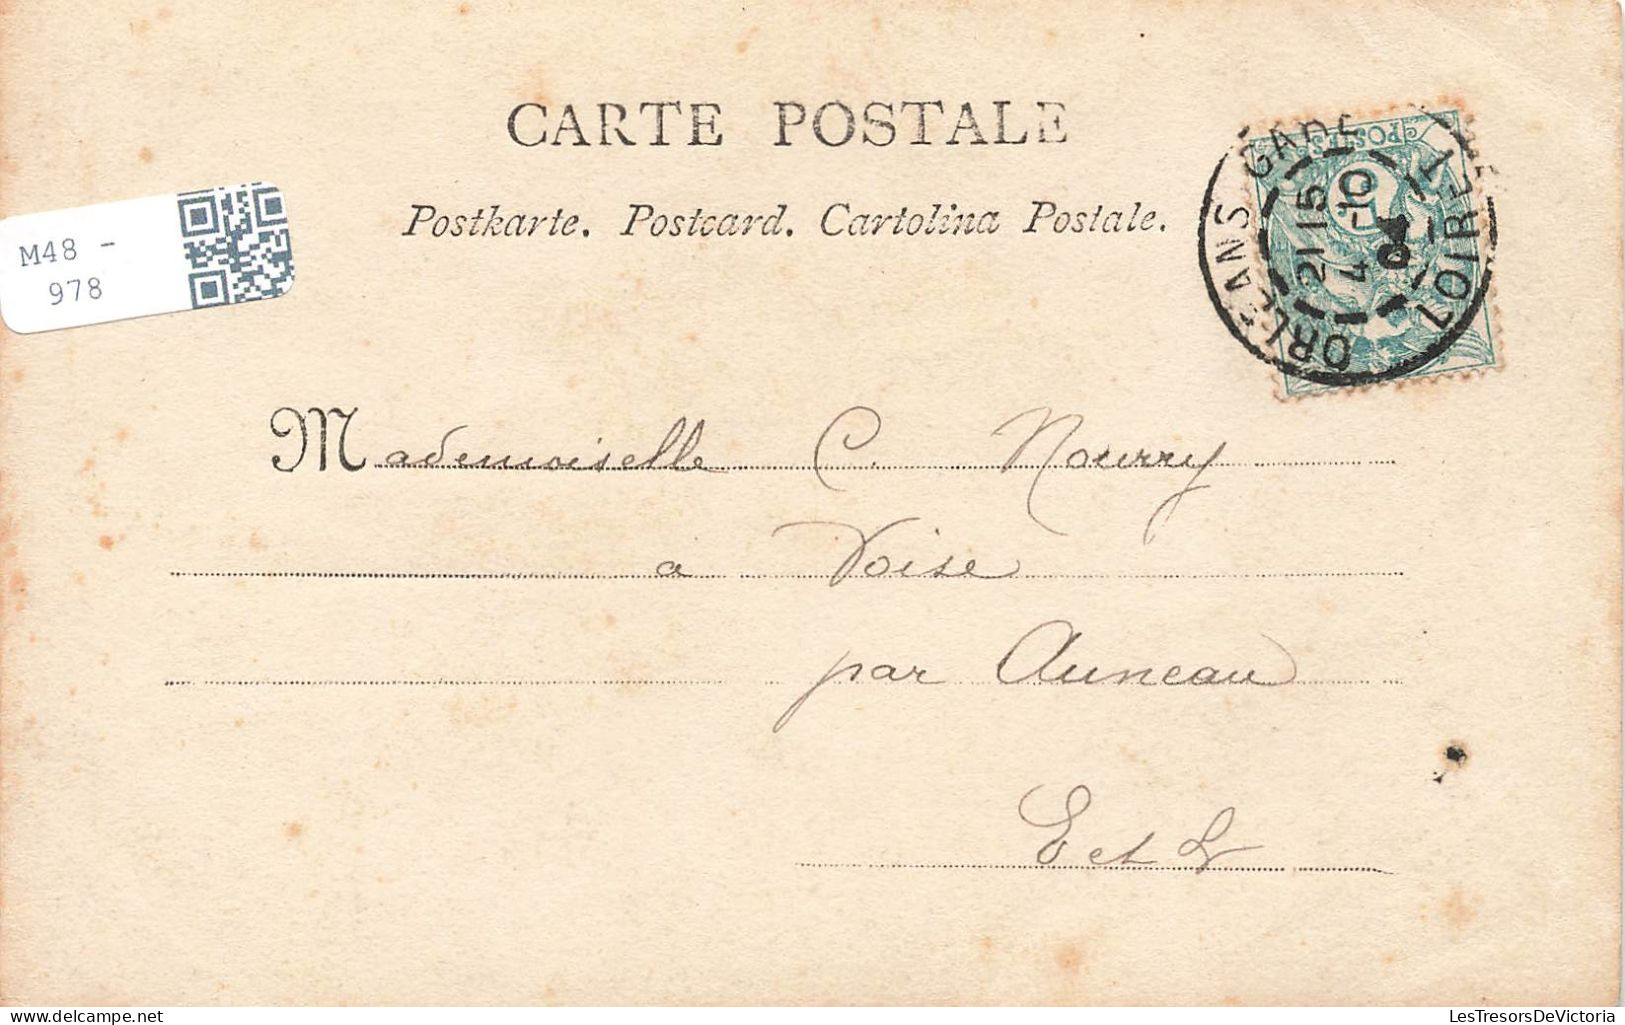 CARTE POSTALE
Postkarte. Postcard. Cartolina Postale.
M48 -
978
POSTES
ORLEANS GARE
21 15
4 -10
04
LOIRET
Mademoiselle C. Nourry
à Voise
par Auneau
E et L
LesTresorsDeVictoria